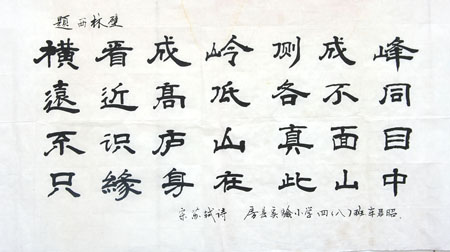 题西林壁
横看成岭侧成峰
遠近高低各不同
不识庐山真面目
只緣身在此山中
宋苏轼诗 实验小学四(八)班